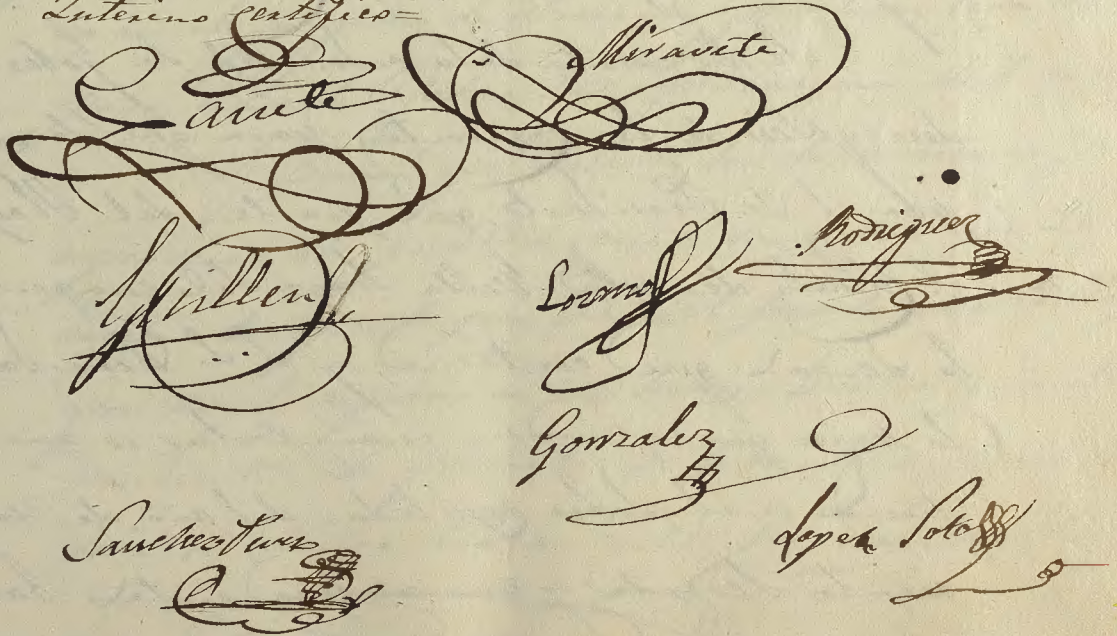 Interino certifico=
Miravete
Cañete
Guillen
Lozano
Rodriguez
Gonzalez
Sanchez
Lopez Soto